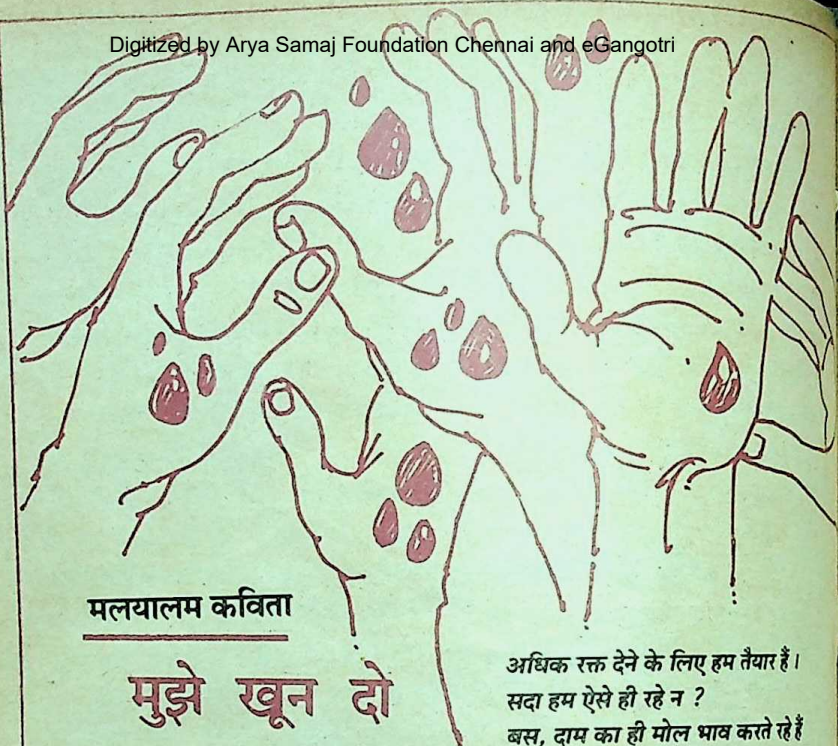 Digitized by Arya Samaj Foundation Chennai and eGangotri
मलयालम कविता
मुझे खून दो
अधिक रक्त देने के लिए हम तैयार हैं।
सदा हम ऐसे ही रहे न ?
बस, दाम का ही मोल भाव करते रहे हैं